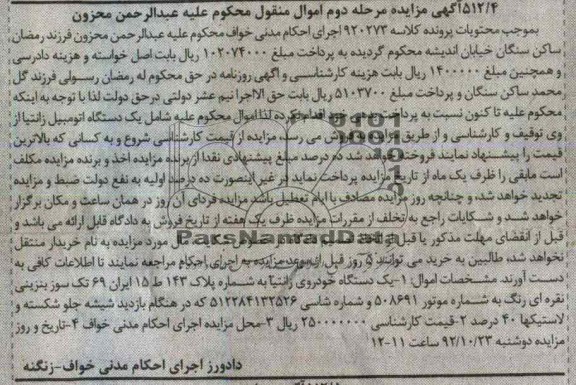 ۵۱۲/۴آگهی مزایده مرحله دوم اموال منقول محکوم علیه عبدالرحمن محزون
بموجب محتویات پرونده کلاسه ۹۲۰۲۷۳ اجرای احکام مدنی خواف محکوم علیه عبدالرحمن محزون فرزند رمضان
ساکن سنگان خیابان اندیشه محکوم گردیده به پرداخت مبلغ ۱۰۲۰۷۴۰۰۰ ریال بابت اصل خواسته و هزینه دادرسی
و همچنین مبلغ ۱۴۰۰۰۰۰ ریال بابت هزینه کارشناسی و آگهی روزنامه در حق محکوم له رمضان رسولی فرزند گل
محمد ساکن سنگان و پرداخت مبلغ ۵۱۰۳۷۰۰ ریال بابت حق الاجرا نیم عشر دولتی درحق دولت لذا با توجه به اینکه
محکوم علیه تا کنون نسبت به پرداخت اقدام نکرده لذا اموال محکوم علیه شامل یک دستگاه اتومبیل زانتیا از
وی توقیف و کارشناسی و از طریق مزایده بفروش می رسد، مزایده از قیمت کارشناسی شروع و به کسانی که بالاترین
قیمت را پیشنهاد نمایند فروخته خواهد شد ده درصد مبلغ پیشنهادی نقدا از برنده مزایده اخذ و برنده مزایده مکلف
است مابقی را ظرف یک ماه از تاریخ مزایده پرداخت نماید در غیر اینصورت ده درصد اولیه به نفع دولت ضبط و مزایده
تجدید خواهد شد، و چنانچه روز مزایده مصادف با ایام تعطیل باشد مزایده فردای آن روز در همان ساعت و مکان برگزار
خواهد شد و شکایات راجع به تخلف از مقررات مزایده ظرف یک هفته از تاریخ فروش به دادگاه قابل ارائه می باشد و
قبل از انقضای مهلت مذکور یا قبل مورد مزایده به نام خریدار منتقل
نخواهد شد، طالبین به خرید می توانند ۵ روز قبل از موعد مزایده به اجرای احکام مراجعه نمایند تا اطلاعات کافی به
دست آورند. مشخصات اموال: ۱-یک دستگاه خودروی زانتیا به شماره پلاک ۱۴۳ ط ۱۵ ایران ۶۹ تک سوز بنزینی
نقره ای رنگ به شماره موتور ۵۰۸۶۹۱ و شماره شاسی ۵۱۲۲۸۴۱۳۲۵۲۶ که در هنگام بازدید شیشه جلو شکسته و
لاستیکها ۴۰ درصد ۲-قیمت کارشناسی ۲۵۰۰۰۰۰۰۰ ریال ۳-محل مزایده اجرای احکام مدنی خواف ۴-تاریخ و روز
مزایده دوشنبه ۹۲/۱۰/۲۳ ساعت ۱۱-۱۲
دادورز اجرای احکام مدنی خواف-زنگنه
ParsNamadData